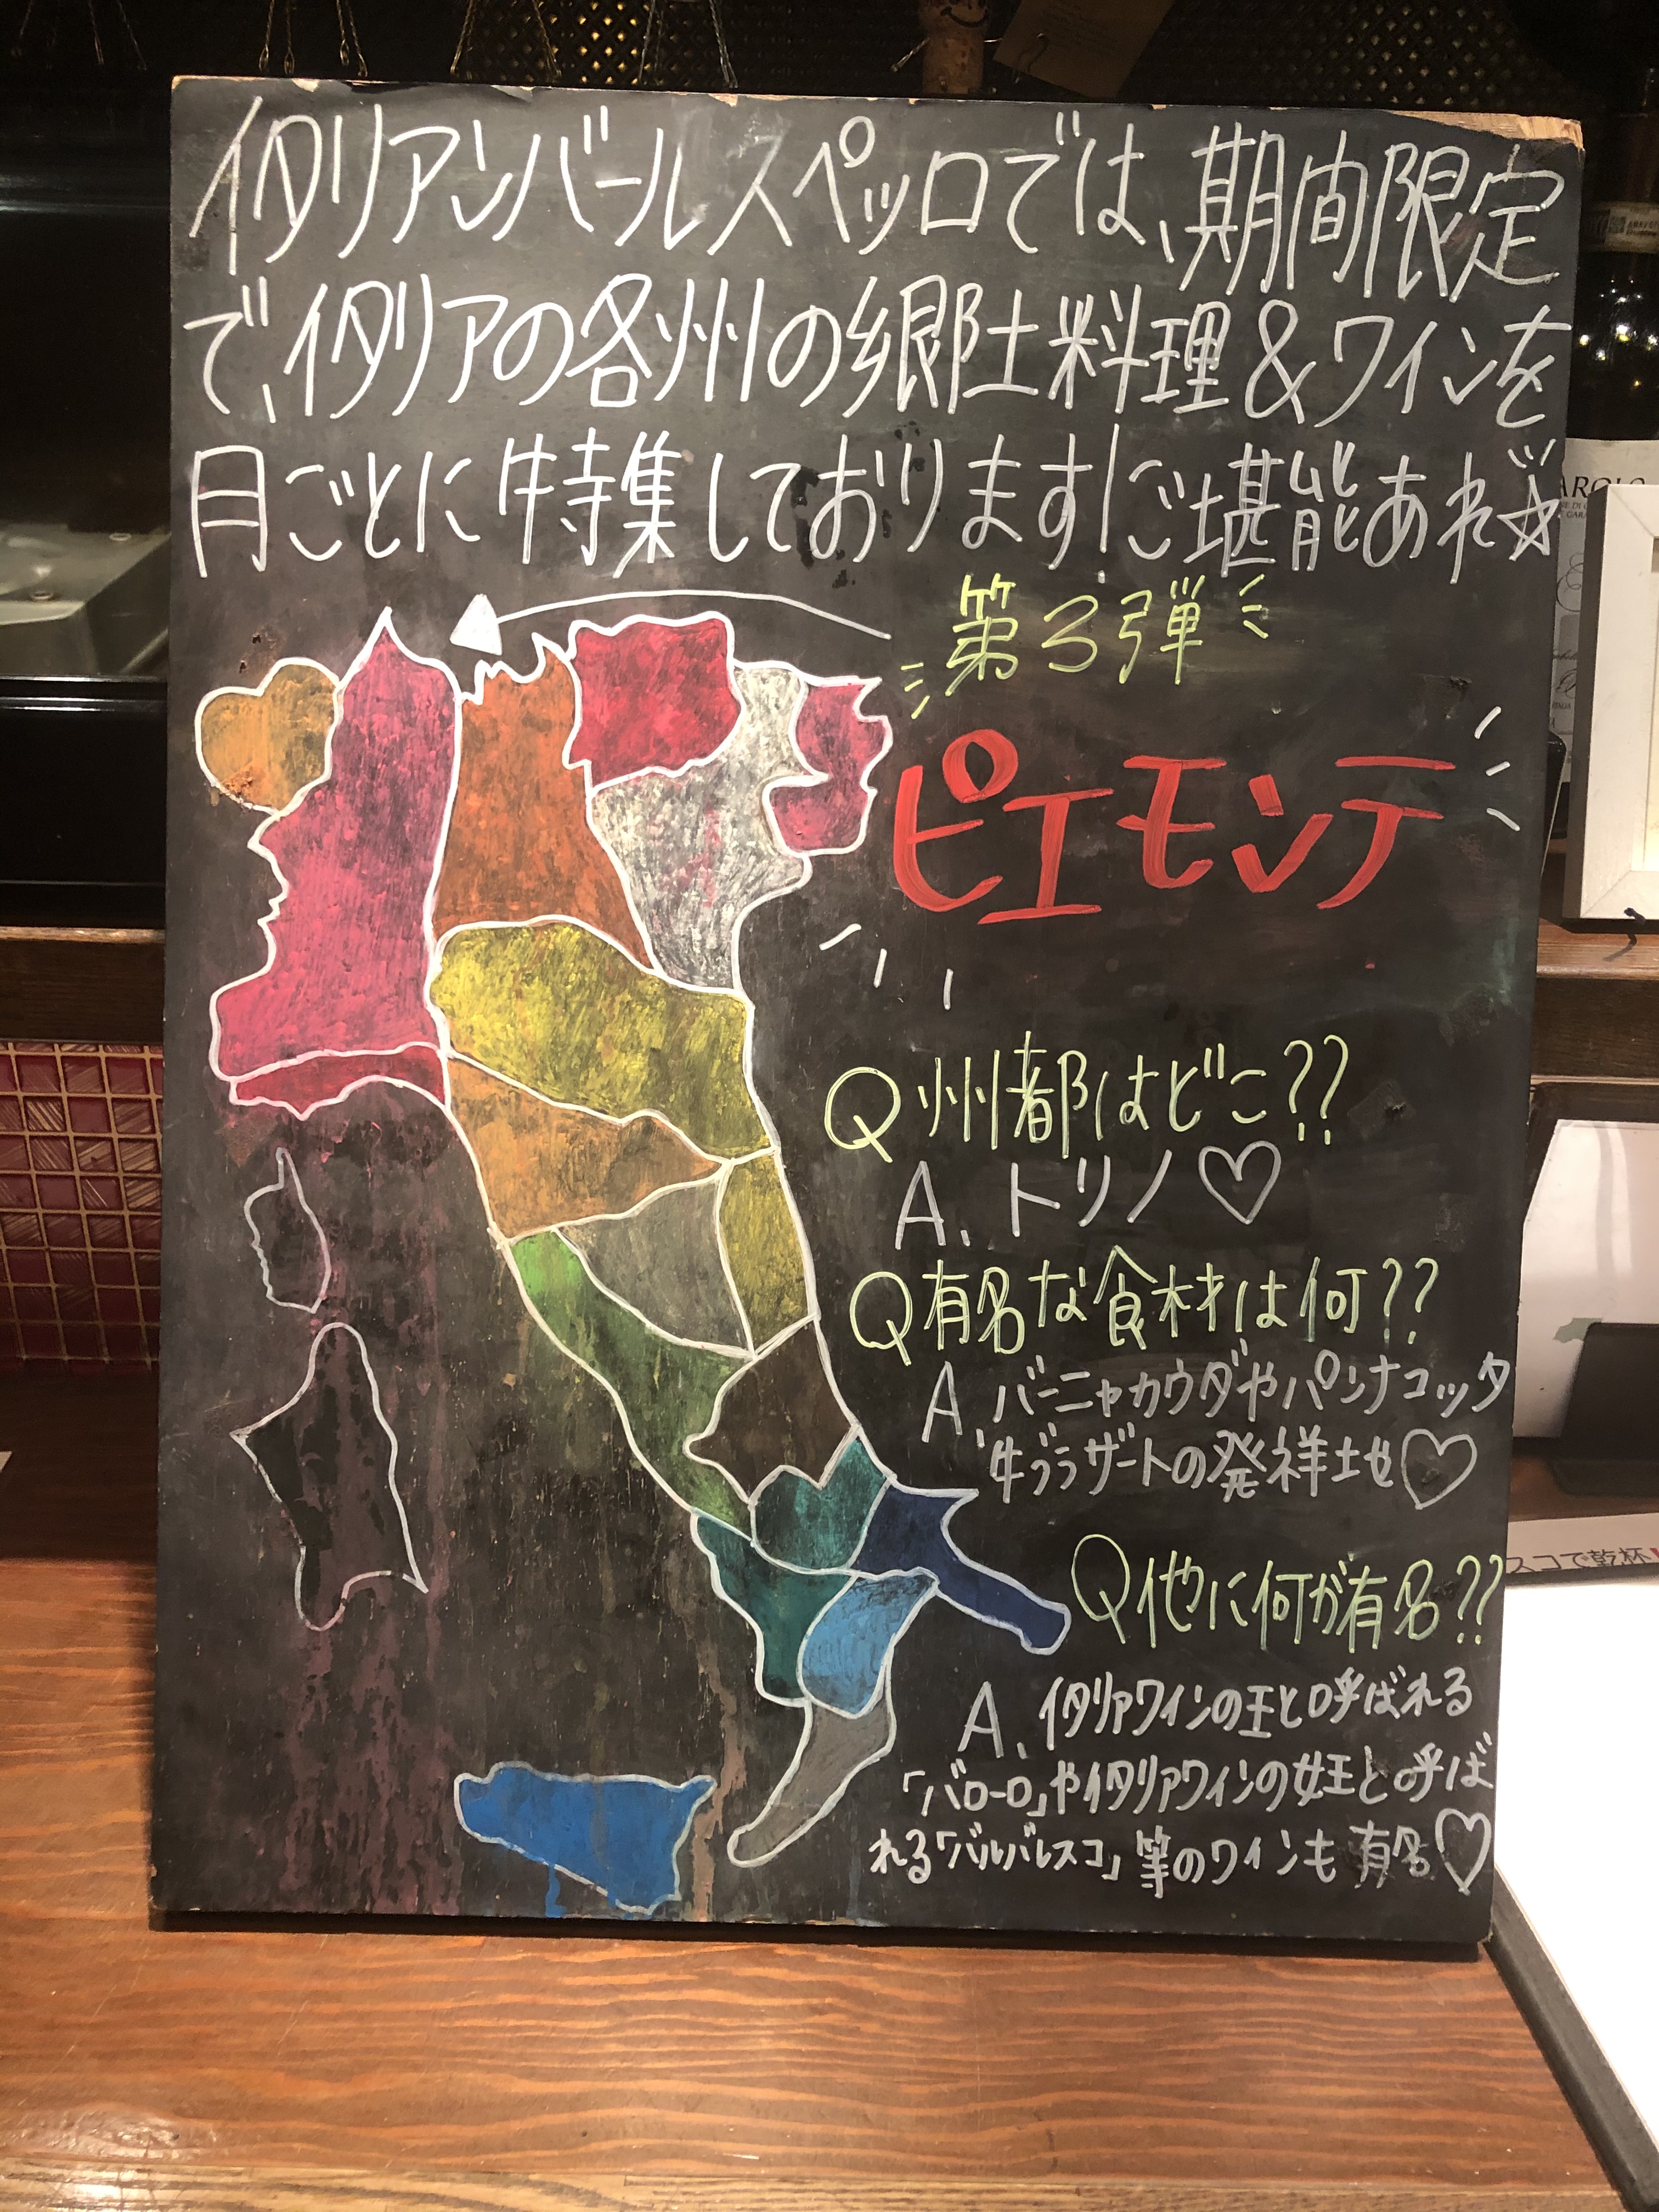 イタリアンバールスペッロでは、期間限定
で、イタリアの各州の郷土料理&ワインを
月ごとに特集しております!ご堪能あれ☆
第3弾
ピエモンテ
Q 州都はどこ??
A、トリノ♡
Q 有名な食材は何??
A、バーニャカウダやパンナコッタ
牛ブラザートの発祥地♡
Q 他に何が有名??
A、イタリアワインの王と呼ばれる
「バローロ」やイタリアワインの女王と呼ば
れる「バルバレスコ」等のワインも有名♡
AROLO
スコで乾杯